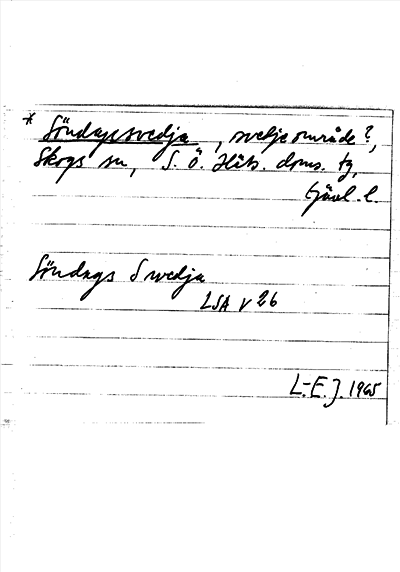 * Söndagssvedja, svedjeområde?,
Skogs sn, S. Ö. Häls. doms. tg,
Gävl. l.
Söndags Swedja
LSA V 26
L-E. J. 1965